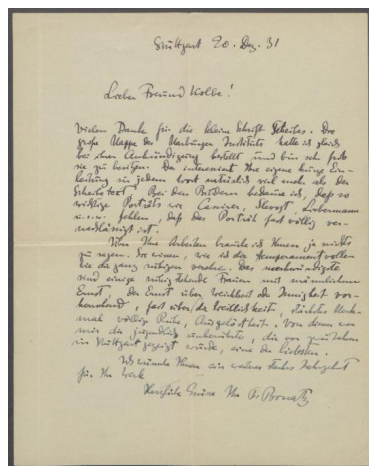 Stuttgart 20. Dez. 31
Lieber Freund Kolbe!
Vielen Dank für die kleine Schrift Scheites. Die
große Mappe des Marburger Instituts hatte ich gleich
bei ihrer Ankündigung bestellt und bin sehr froh
sie zu besitzen. Da interessiert Ihre eigene kurze Ein-
leitung in jedem Wort natürlich viel mehr als der
Bei den Bildern bedaure ich, daß so
wichtige Porträts wie Cassirer, Slevogt, Liebermann
u.s.w. fehlen, daß das Porträt fast völlig ver-
nachlässigt ist.
Von Ihren Arbeiten brauche ich Ihnen ja nichts
zu sagen. Sie wissen, wie ich die temperamentvollen
wie die ganz ruhigen verehre. Das merkwürdigste
sind einige ruhig stehende Frauen mit männlichem
Ernst, der Ernst über Weichheit oder Innigkeit vor-
herrschend, fast über die Weiblichkeit,
mal völlige Ruhe, Ausgelöstheit. Von denen war
mir die jugendlich unberührte, die vor Jahren
in Stuttgart gezeigt wurde, eine der liebsten.
Ich wünsche Ihnen ein weiteres Jahrzehnt
für Ihr Werk
Herzliche Grüsse Ihr P. Bonatz